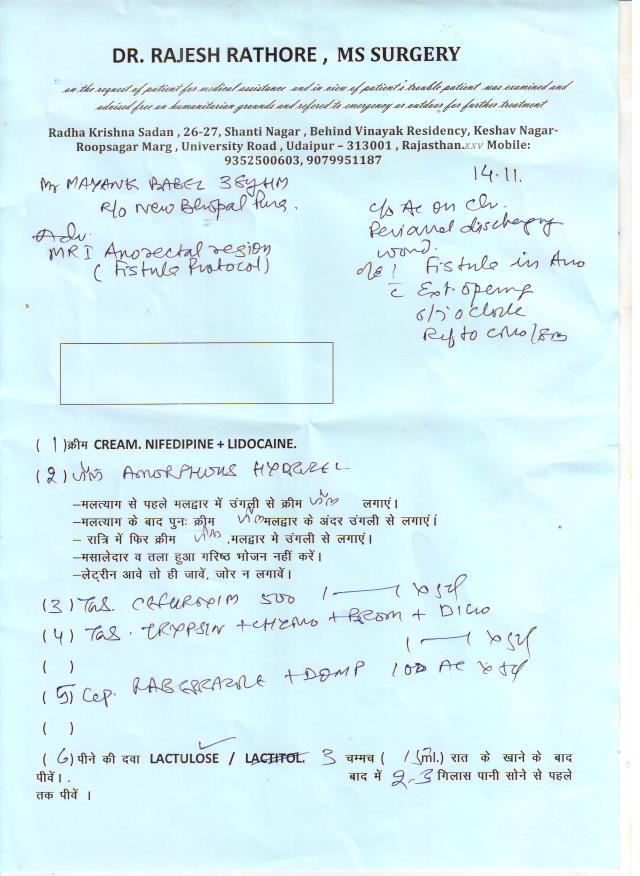 DR. RAJESH RATHORE , MS SURGERY
on the request of patient for medical assistance and in view of patient's trouble patient was examined and
advised free on humanitarian grounds and refered to emergency or outdoor for further treatment
Radha Krishna Sadan , 26-27, Shanti Nagar , Behind Vinayak Residency, Keshav Nagar-
Roopsagar Marg , University Road , Udaipur – 313001 , Rajasthan.xxv Mobile:
9352500603, 9079951187
14.11.
Mr MAYANK BABEL 38y HM
R/o New Bhopal Pura.
Adv.
MRI Anorectal region
( Fistula Protocol)
c/o Ac on Chr.
Perianal discharging
wound.
o/e ! Fistula in Ano
c Ext. opening
o'clock
Ref to
( 1 )क्रीम CREAM. NIFEDIPINE + LIDOCAINE.
(2) AMORPHOUS HYDROGEL
–मलत्याग से पहले मलद्वार में उंगली से क्रीम लगाएं।
–मलत्याग के बाद पुनः क्रीम मलद्वार के अंदर उंगली से लगाएं।
– रात्रि में फिर क्रीम .मलद्वार मे उंगली से लगाएं।
–मसालेदार व तला हुआ गरिष्ठ भोजन नहीं करें।
–लेट्रीन आवे तो ही जावें, जोर न लगावें।
(3) Tab. CEFUROXIM 500 1 — 1 x 5d
(4) Tab. TRYPSIN + CHYMO + BROM + DICLO
1 — 1 x 5d
( )
(5) Cap. RABEPRAZOLE + DOMP 1 OD AC x 5d
( )
( 6) पीने की दवा LACTULOSE / LACTITOL. 3 चम्मच ( 15ml.) रात के खाने के बाद
पीवें। . बाद में 2-3 गिलास पानी सोने से पहले
तक पीवें ।